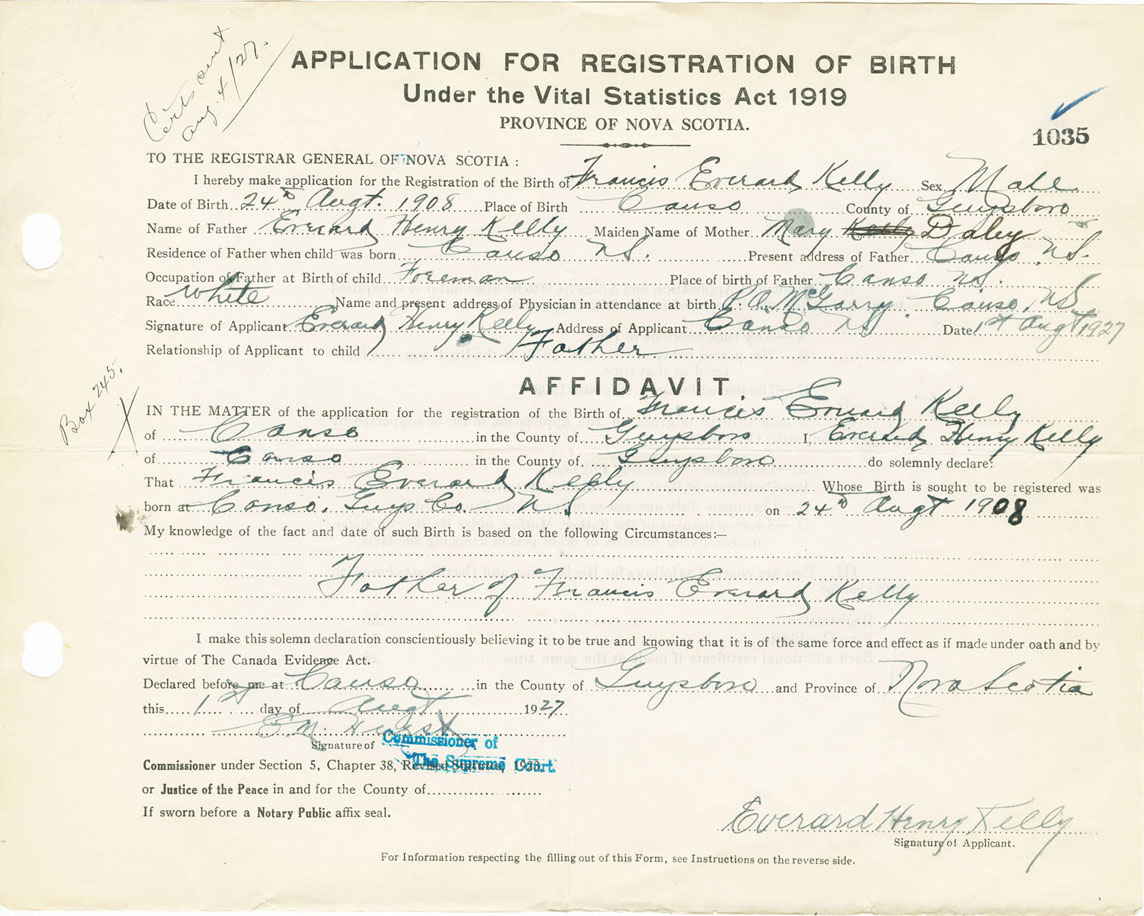 Certs out
Aug. 4/27.
APPLICATION FOR REGISTRATION OF BIRTH
Under the Vital Statistics Act 1919
PROVINCE OF NOVA SCOTIA.
1035
TO THE REGISTRAR GENERAL OF NOVA SCOTIA :
I hereby make application for the Registration of the Birth of Francis Everard Kelly Sex Male
Date of Birth 24th Augt. 1908 Place of Birth Canso County of Guysboro
Name of Father Everard Henry Kelly Maiden Name of Mother Mary Kelly Daley
Residence of Father when child was born Canso NS. Present address of Father Canso NS.
Occupation of Father at Birth of child Foreman Place of birth of Father Canso NS.
Race White Name and present address of Physician in attendance at birth P. A. McGarry Canso, NS
Signature of Applicant Everard Henry Kelly Address of Applicant Canso NS Date 1st Augt 1927
Relationship of Applicant to child Father
AFFIDAVIT
Box 245.
X
IN THE MATTER of the application for the registration of the Birth of Francis Everard Kelly
of Canso in the County of Guysboro I, Everard Henry Kelly
of Canso in the County of Guysboro do solemnly declare:
That Francis Everard Kelly Whose Birth is sought to be registered was
born at Canso, Guys Co. NS on 24th Augt 1908
My knowledge of the fact and date of such Birth is based on the following Circumstances:—
Father of Francis Everard Kelly
I make this solemn declaration conscientiously believing it to be true and knowing that it is of the same force and effect as if made under oath and by
virtue of The Canada Evidence Act.
Declared before me at Canso in the County of Guysboro and Province of Nova Scotia
this 1st day of Augt 1927
E M. Hurst
Signature of Commissioner of
The Supreme Court.
Commissioner under Section 5, Chapter 38, Revised Statutes, 1923.
or Justice of the Peace in and for the County of
If sworn before a Notary Public affix seal.
Everard Henry Kelly
Signature of Applicant.
For Information respecting the filling out of this Form, see Instructions on the reverse side.